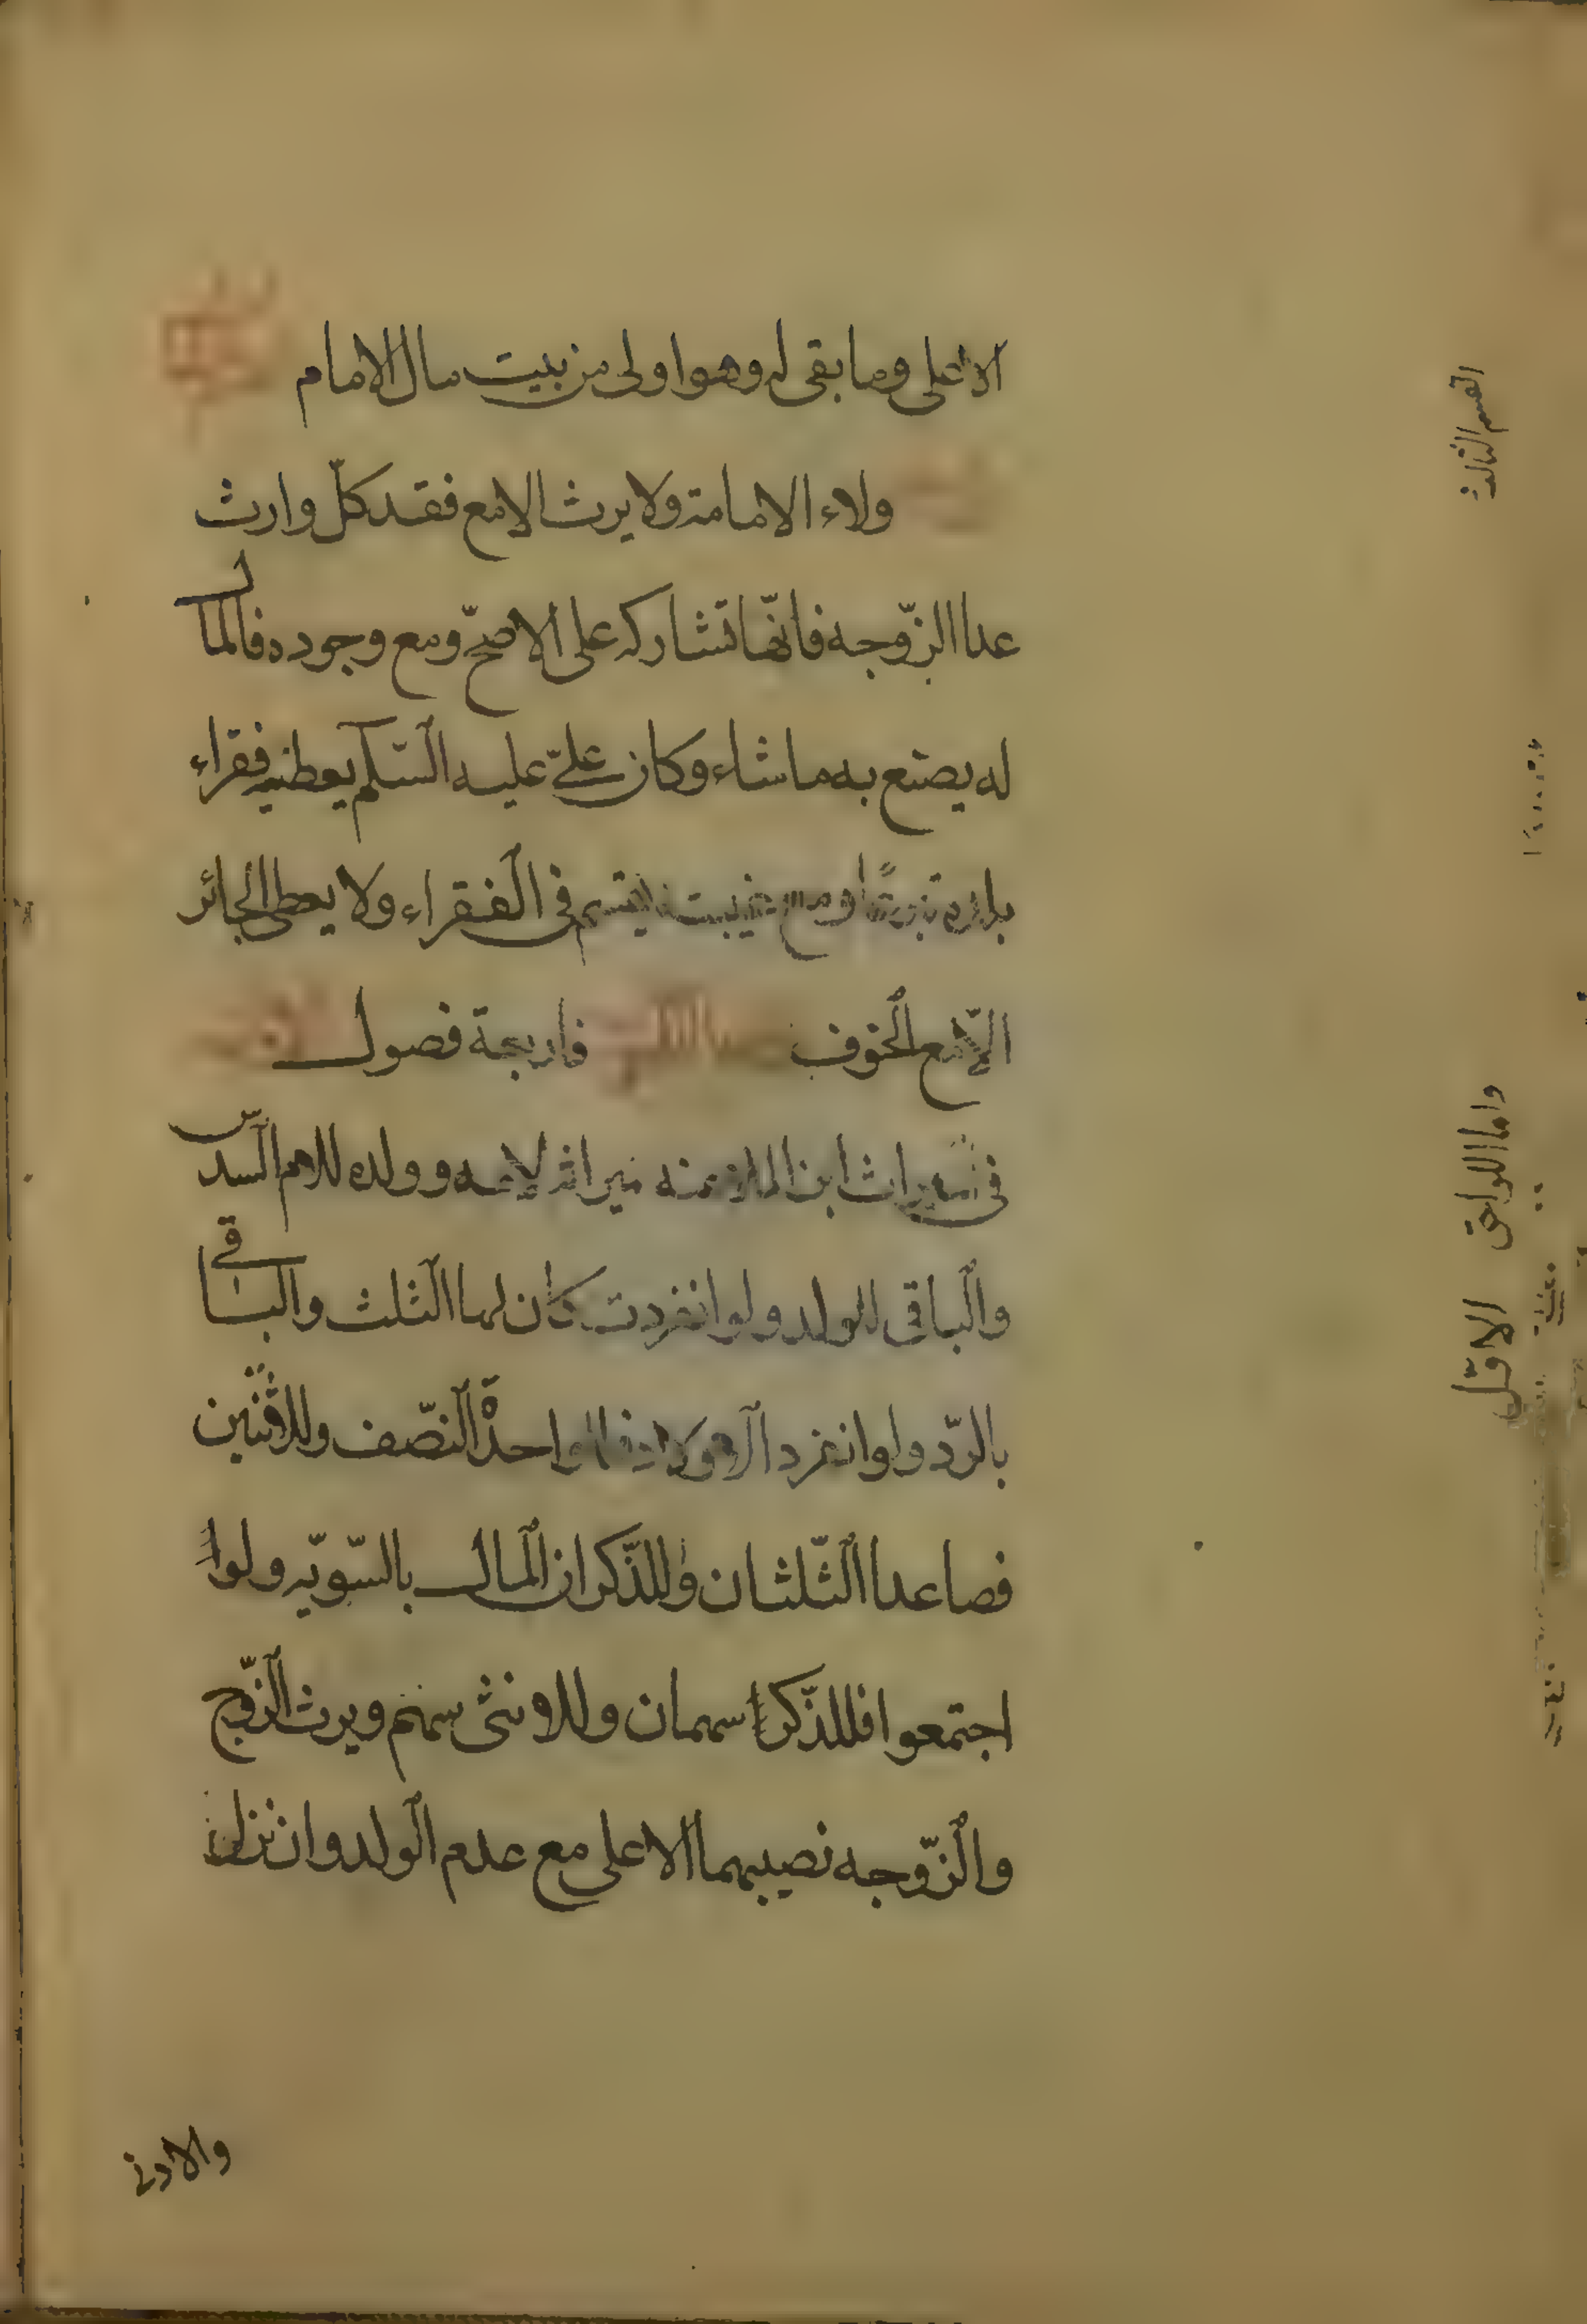 الاعلى وما بقى له وهو اولى من بيت مال الامام
ولاء الامامة ولا يرث الا مع فقد كلّ وارث
عدا الزّوجه فانّها تشاركه على الاصحّ ومع وجوده فالمال
له يصنع به ما شاء وكان علىّ عليه السّلم يعطيه فقراء
بلده تبرعًا ومع غيبته يقسم فى الفقراء ولا يعطى الجائر
الّا مع الخوف فاربعة فصول
فى ميراث ابن الملاعنه ميراثه لامه وولده للام السّدس
والباقى للولد ولو انفردت كان لها الثلث والباقى
بالردّ ولو انفرد الاولاد فللواحدة النّصف وللاثنين
فصاعدا الثّلثان وللذّكران المال بالسّويّه ولو
اجتمعوا فللذّكر سهمان وللانثى سهم ويرث الزّوج
والزّوجه نصيبهما الاعلى مع عدم الولد وان نزل
والادنى
القسم الثالث
واما اللواحق
الاوّل